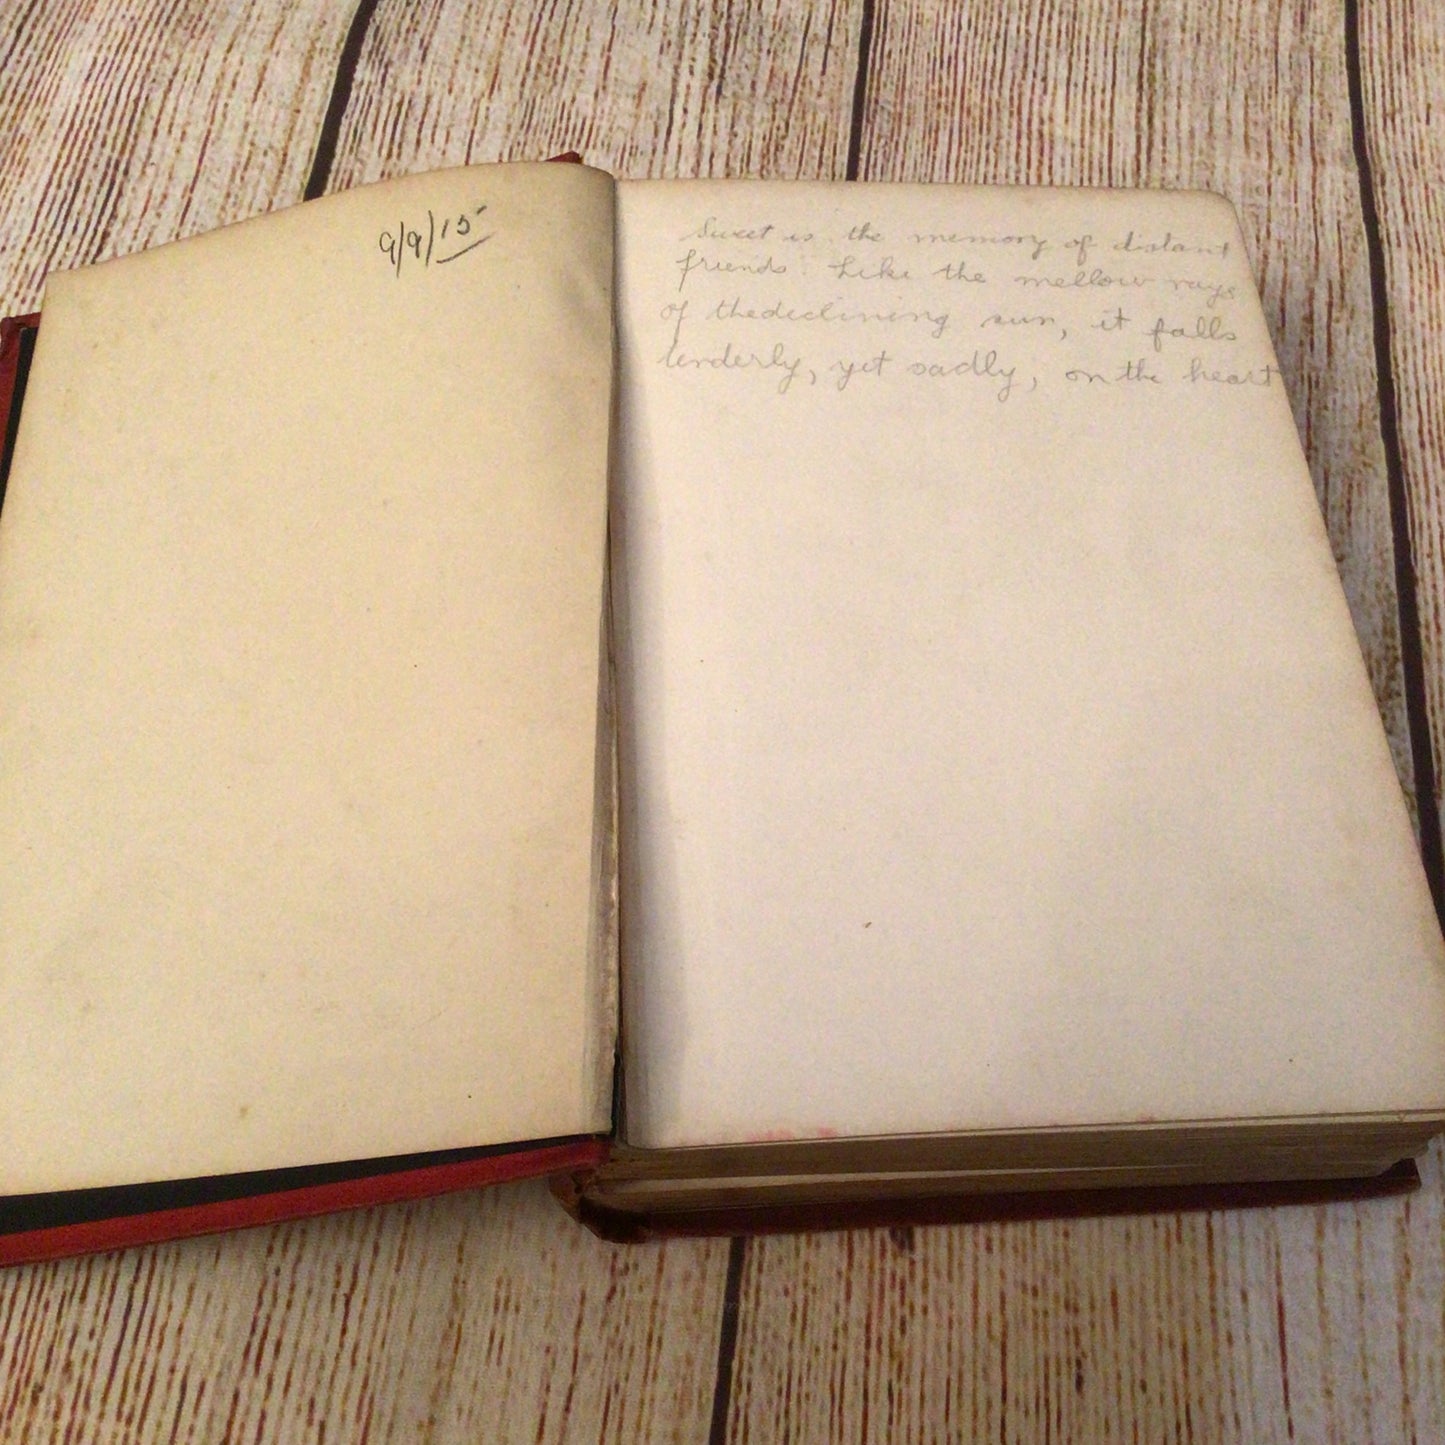 9/9/15
Sweet is the memory of distant
friends. Like the mellow rays
of the declining sun, it falls
tenderly, yet sadly, on the heart